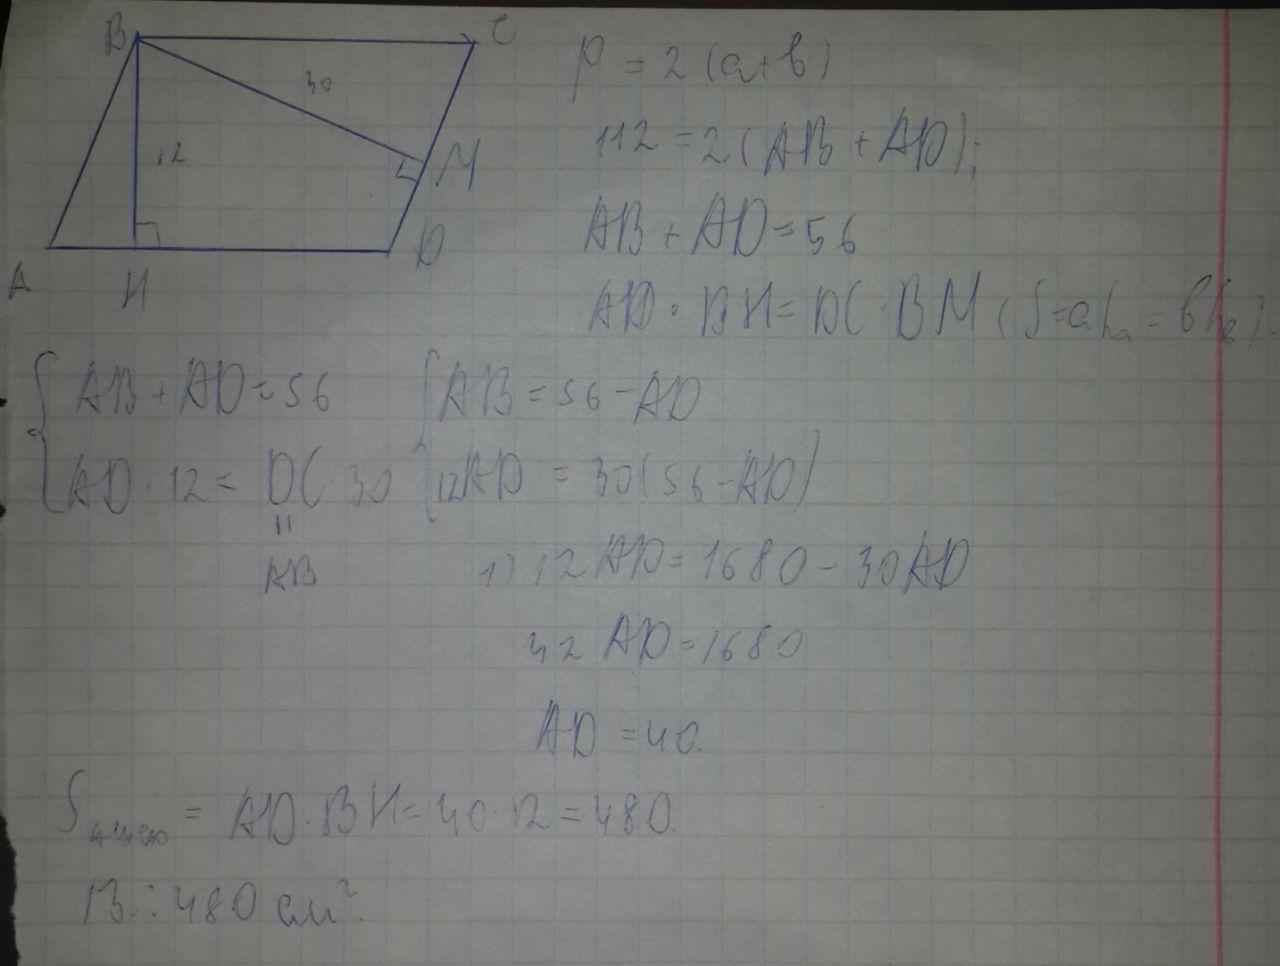 B C
30
12
M
A H D
P = 2(a+b)
112 = 2(AB + AD);
AB + AD = 56
AD · BH = DC · BM (S = a hₐ = b h_b).
{ AB + AD = 56 { AB = 56 - AD
AD · 12 = DC · 30 12AD = 30(56 - AD)
||
AB
1) 12AD = 1680 - 30AD
42 AD = 1680
AD = 40.
S = AD · BH = 40 · 12 = 480.
В.: 480 см².